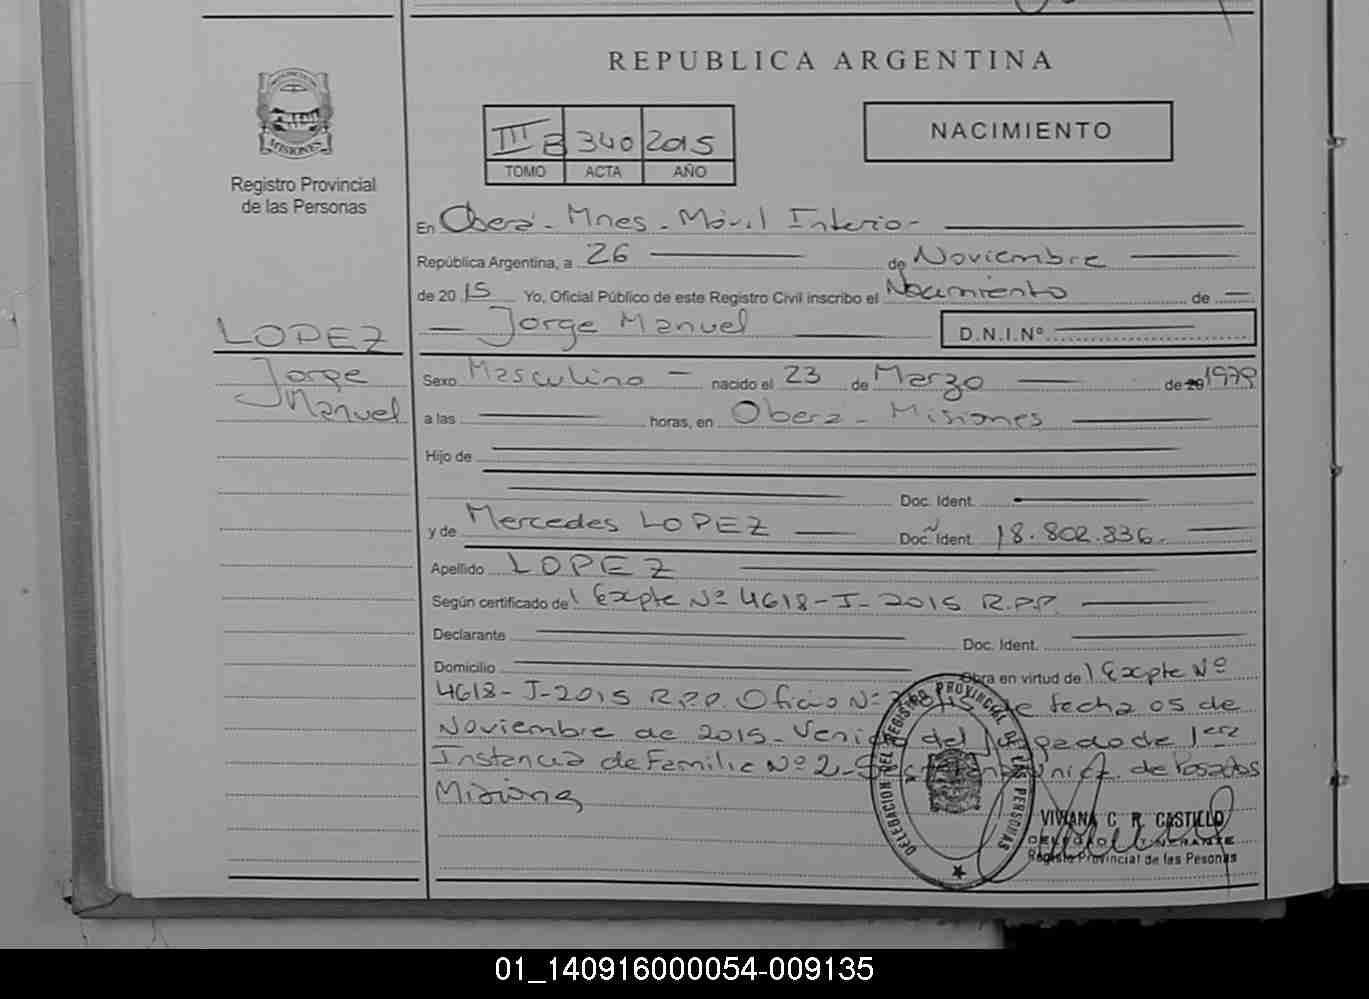 REPUBLICA ARGENTINA
MISIONES
Registro Provincial
de las Personas
III B 340 2015
TOMO ACTA AÑO
NACIMIENTO
En Oberá - Mnes - Móvil Interior
República Argentina, a 26 de Noviembre
de 2015 Yo, Oficial Público de este Registro Civil inscribo el Nacimiento de
Jorge Manuel D.N.I.Nº
LOPEZ
Jorge
Manuel
Sexo Masculino nacido el 23 de Marzo de 20 1979
a las horas, en Oberá - Misiones
Hijo de
Doc. Ident.
y de Mercedes LOPEZ Doc. Ident. 18.802.836.
Apellido LOPEZ
Según certificado de Expte Nº 4618-I-2015 R.P.P.
Declarante Doc. Ident.
Domicilio Obra en virtud de Expte Nº
4618-I-2015 R.P.P. Oficio Nº de fecha 05 de
Noviembre de 2015- del de 1era
Instancia de Familia Nº 2- de Posadas
Misiones
DELEGACION DEL REGISTRO PROVINCIAL DE LAS PERSONAS
VIVIANA C. R. CASTILLO
DELEGADO ITINERANTE
Registro Provincial de las Pesonas
01_140916000054-009135